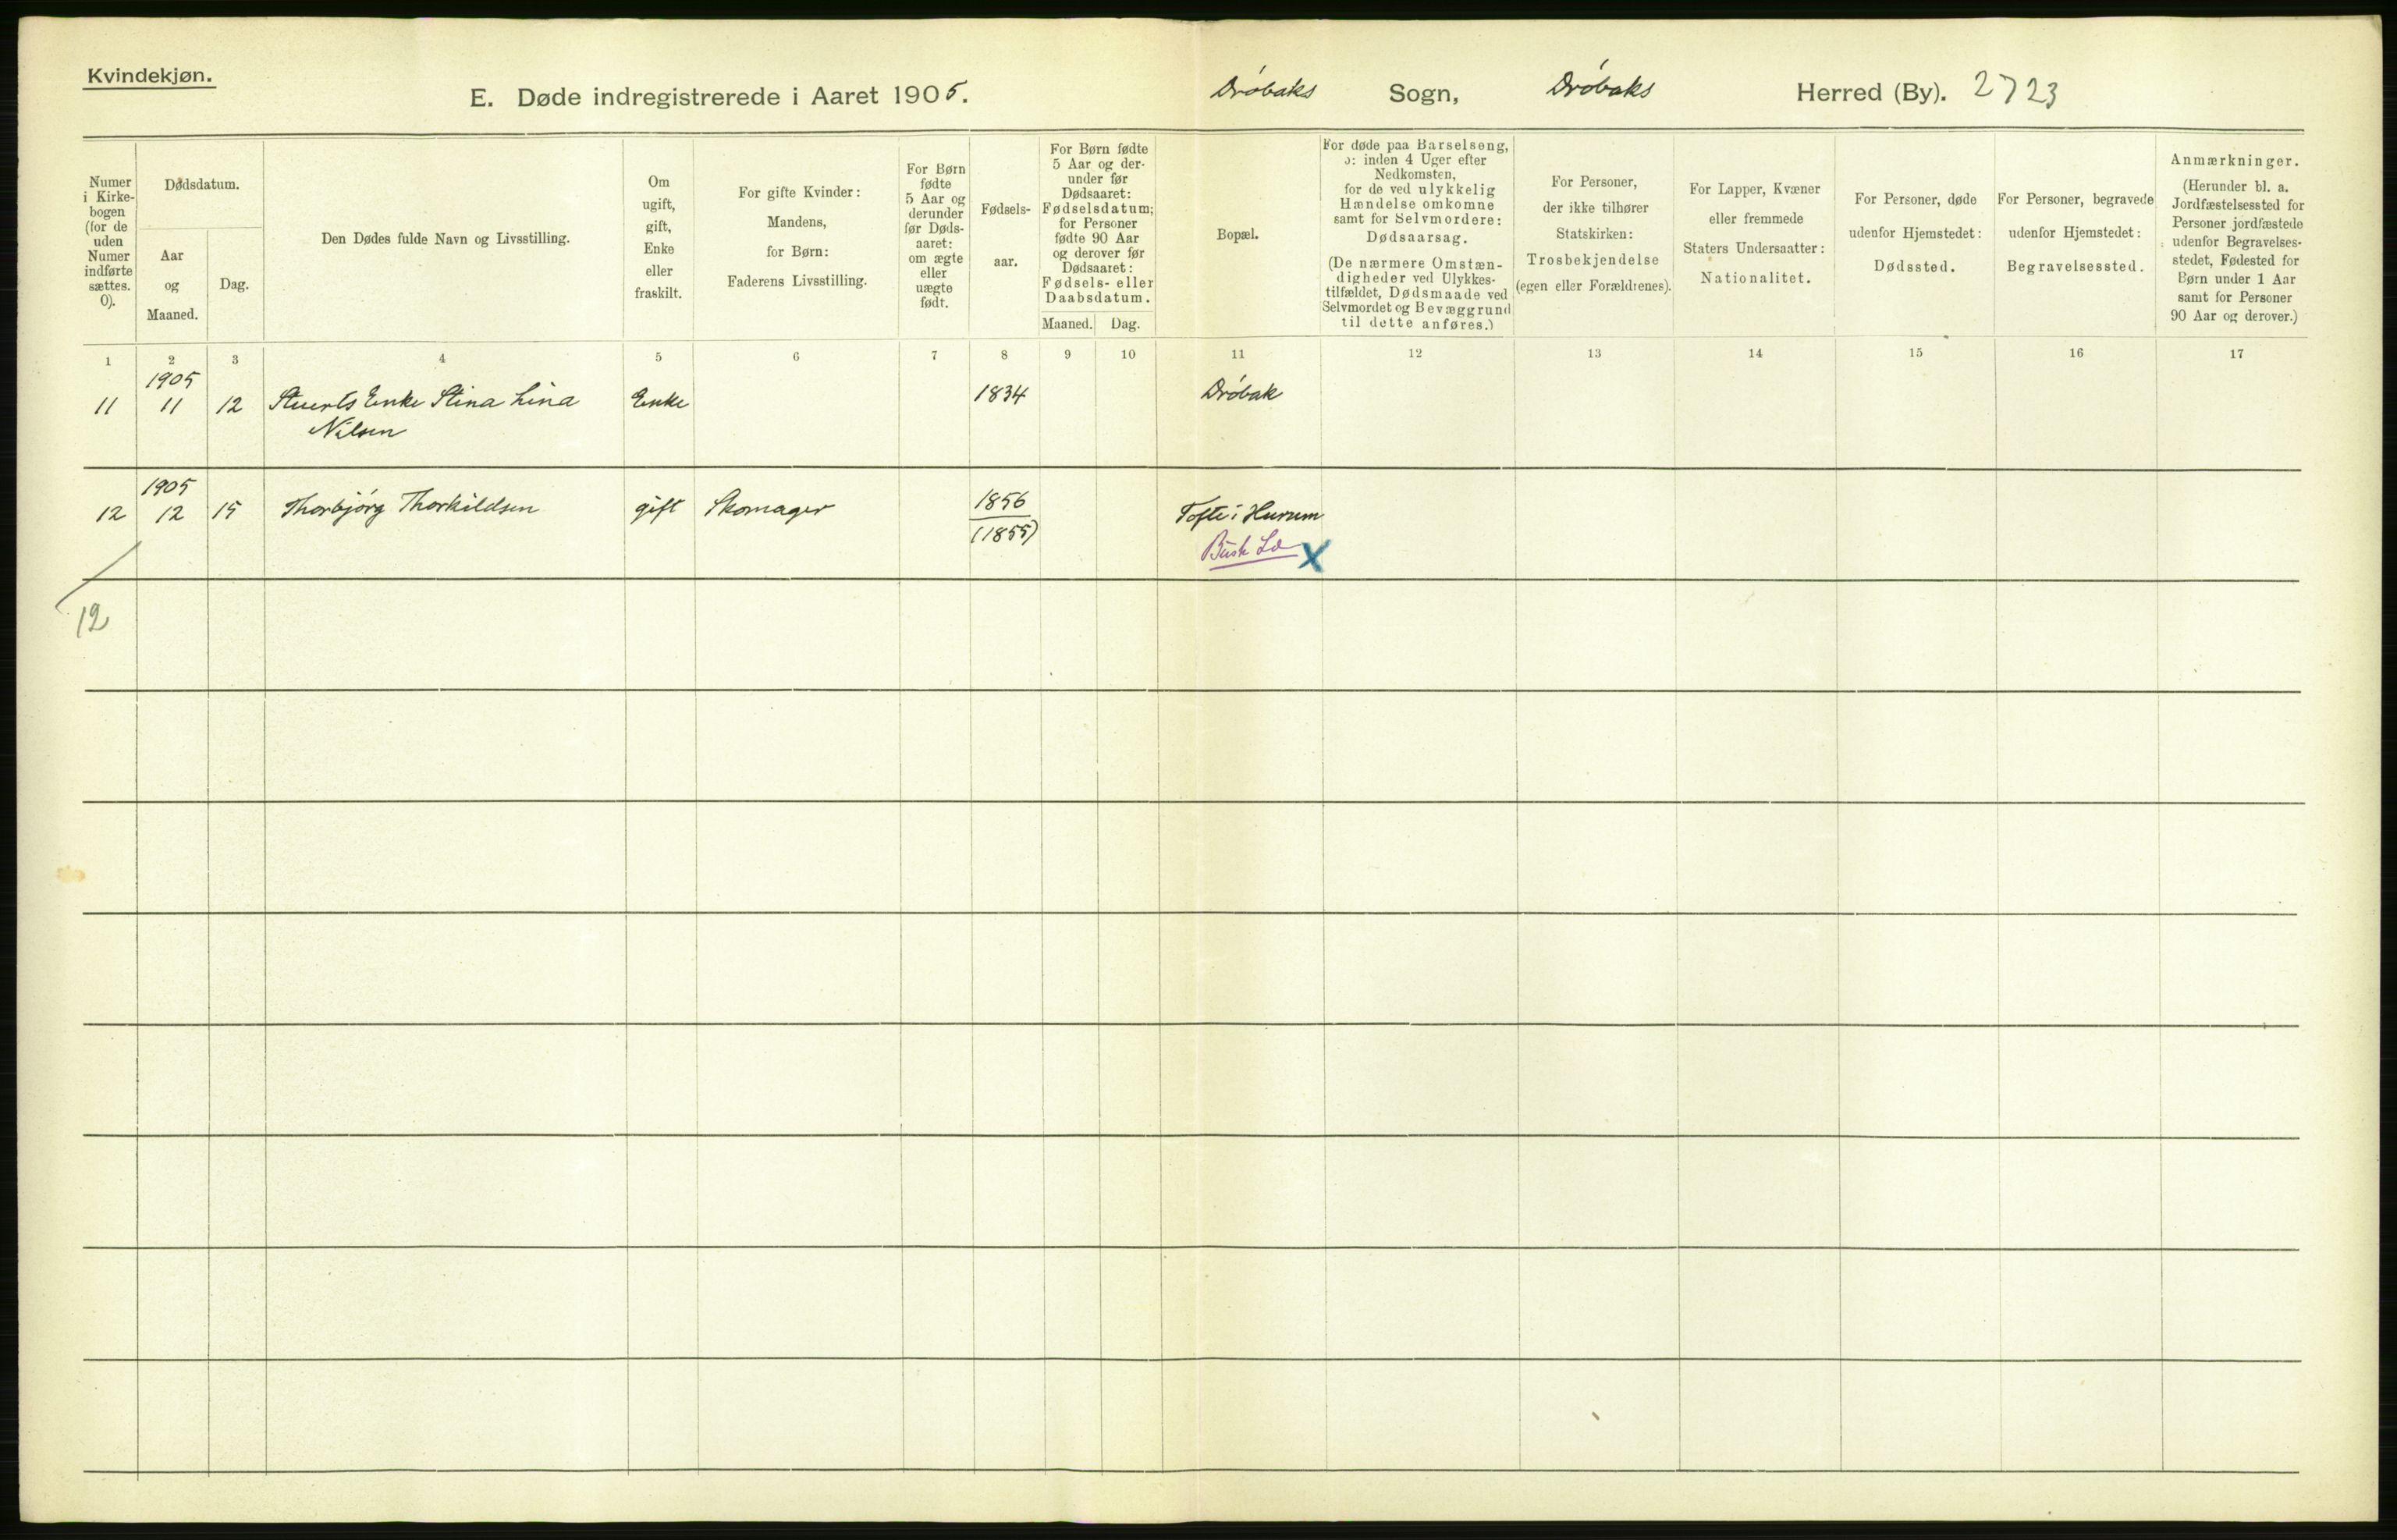 Kvindekjøn.
E. Døde indregistrerede i Aaret 1905.
Drøbaks Sogn, Drøbaks Herred (By). 2723
Numer
i Kirke-
bogen
(for de
uden
Numer
indførte
sættes.
0).
Dødsdatum.
Aar
og
Maaned.
Dag.
Den Dødes fulde Navn og Livsstilling.
Om
ugift,
gift,
Enke
eller
fraskilt.
For gifte Kvinder:
Mandens,
for Børn:
Faderens Livsstilling.
For Børn
fødte
5 Aar og
derunder
før Døds-
aaret:
om ægte
eller
uægte
født.
Fødsels-
aar.
For Børn fødte
5 Aar og der-
under før
Dødsaaret:
Fødselsdatum;
for Personer
fødte 90 Aar
og derover før
Dødsaaret:
Fødsels- eller
Daabsdatum.
Maaned. Dag.
Bopæl.
For døde paa Barselseng,
ɔ: inden 4 Uger efter
Nedkomsten,
for de ved ulykkelig
Hændelse omkomne
samt for Selvmordere:
Dødsaarsag.
(De nærmere Omstæn-
digheder ved Ulykkes-
tilfældet, Dødsmaade ved
Selvmordet og Bevæggrund
til dette anføres.)
For Personer,
der ikke tilhører
Statskirken:
Trosbekjendelse
(egen eller Forældrenes).
For Lapper, Kvæner
eller fremmede
Staters Undersaatter:
Nationalitet.
For Personer, døde
udenfor Hjemstedet:
Dødssted.
For Personer, begravede
udenfor Hjemstedet:
Begravelsessted.
Anmærkninger.
(Herunder bl. a.
Jordfæstelsessted for
Personer jordfæstede
udenfor Begravelses-
stedet, Fødested for
Børn under 1 Aar
samt for Personer
90 Aar og derover.)
1 2 3 4 5 6 7 8 9 10 11 12 13 14 15 16 17
1905
11 11 12 Stuerts Enke Stina Lina Enke 1834 Drøbak
Nilsen
1905
12 12 15 Thorbjørg Thorkildsen gift Skomager 1856 Tofte i Hurum
(1855)
Busk X
12